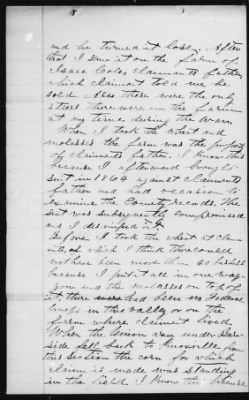 and he turned it lose. After
that I saw it on the farm of
Isaac Cooley, Claimants father
which claimant told me he
sold. Also these were the only
steers there were on the farm
at any time during the war.
When I took the wheat and
molasses the farm was the property
of claimants father. I know this
because I afterward brought
suit in 1864 against claimants
father and had occasion to
examine the County records. The
suit was subsequently compromised
and I dismissed it.
Before I took the wheat of claim
ant, of which I think there could
not have been more than 30 bushels
because I put it all in one wag-
gon and the molasses on top of
it, there had been no Federal
troops in this valley or on the
farm where claimant lived.
When the Union army under Burn
side fell back to Knoxville from
this section the corn for which
claim is made was standing
in the field. I know this because